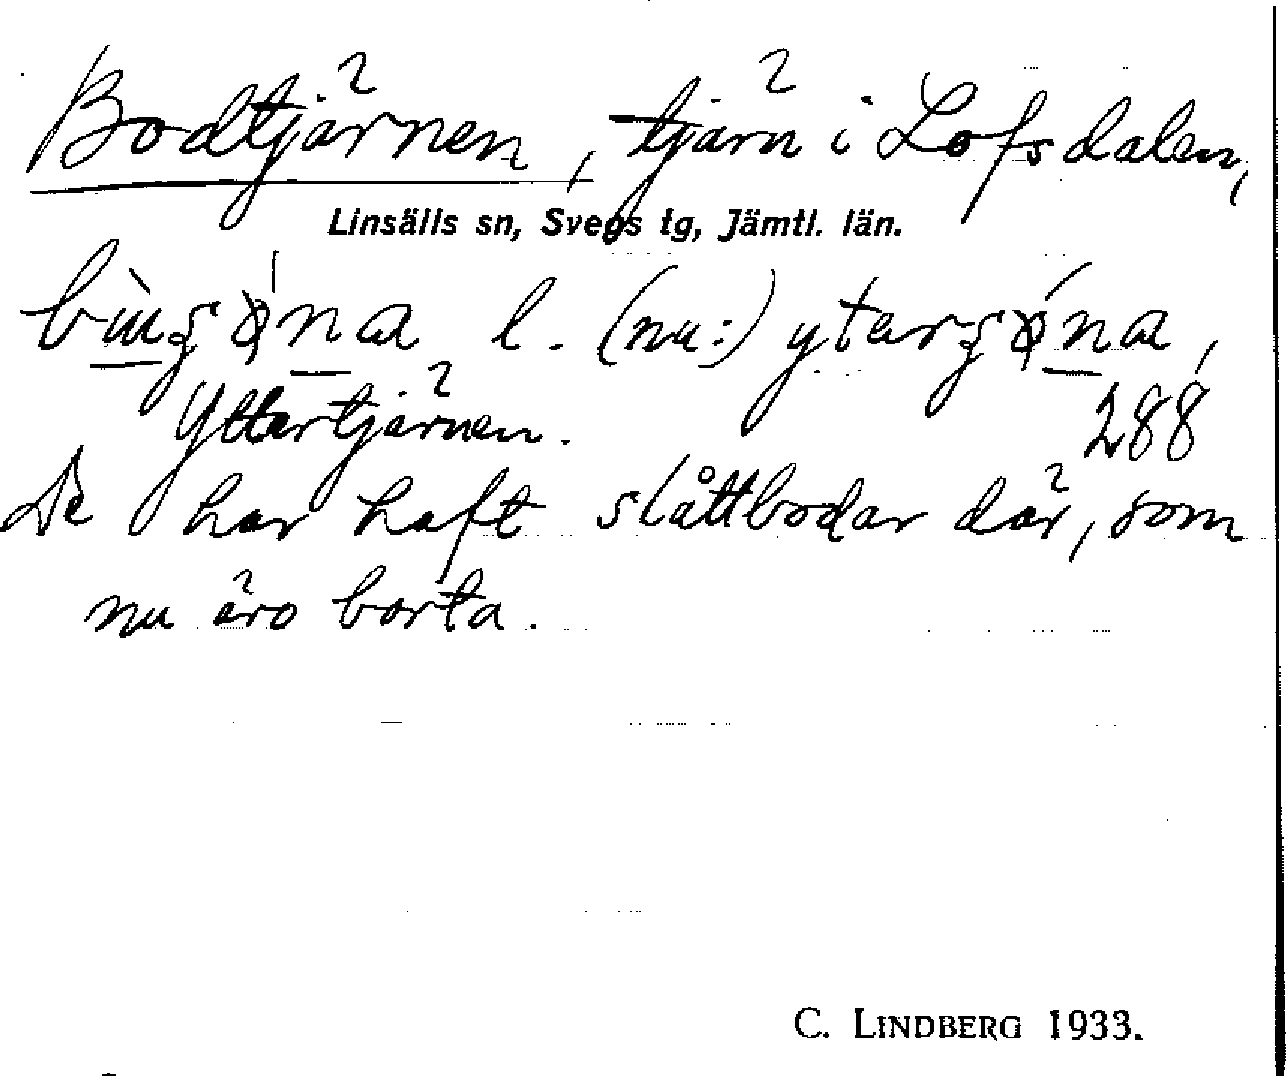 Bodtjärnen, tjärn i Lofsdalen,
Linsälls sn, Svegs tg, Jämtl. län.
l. (nu:)
Yttertjärnen. 288
De har haft slåttbodar där, som
nu äro borta.
C. LINDBERG 1933.